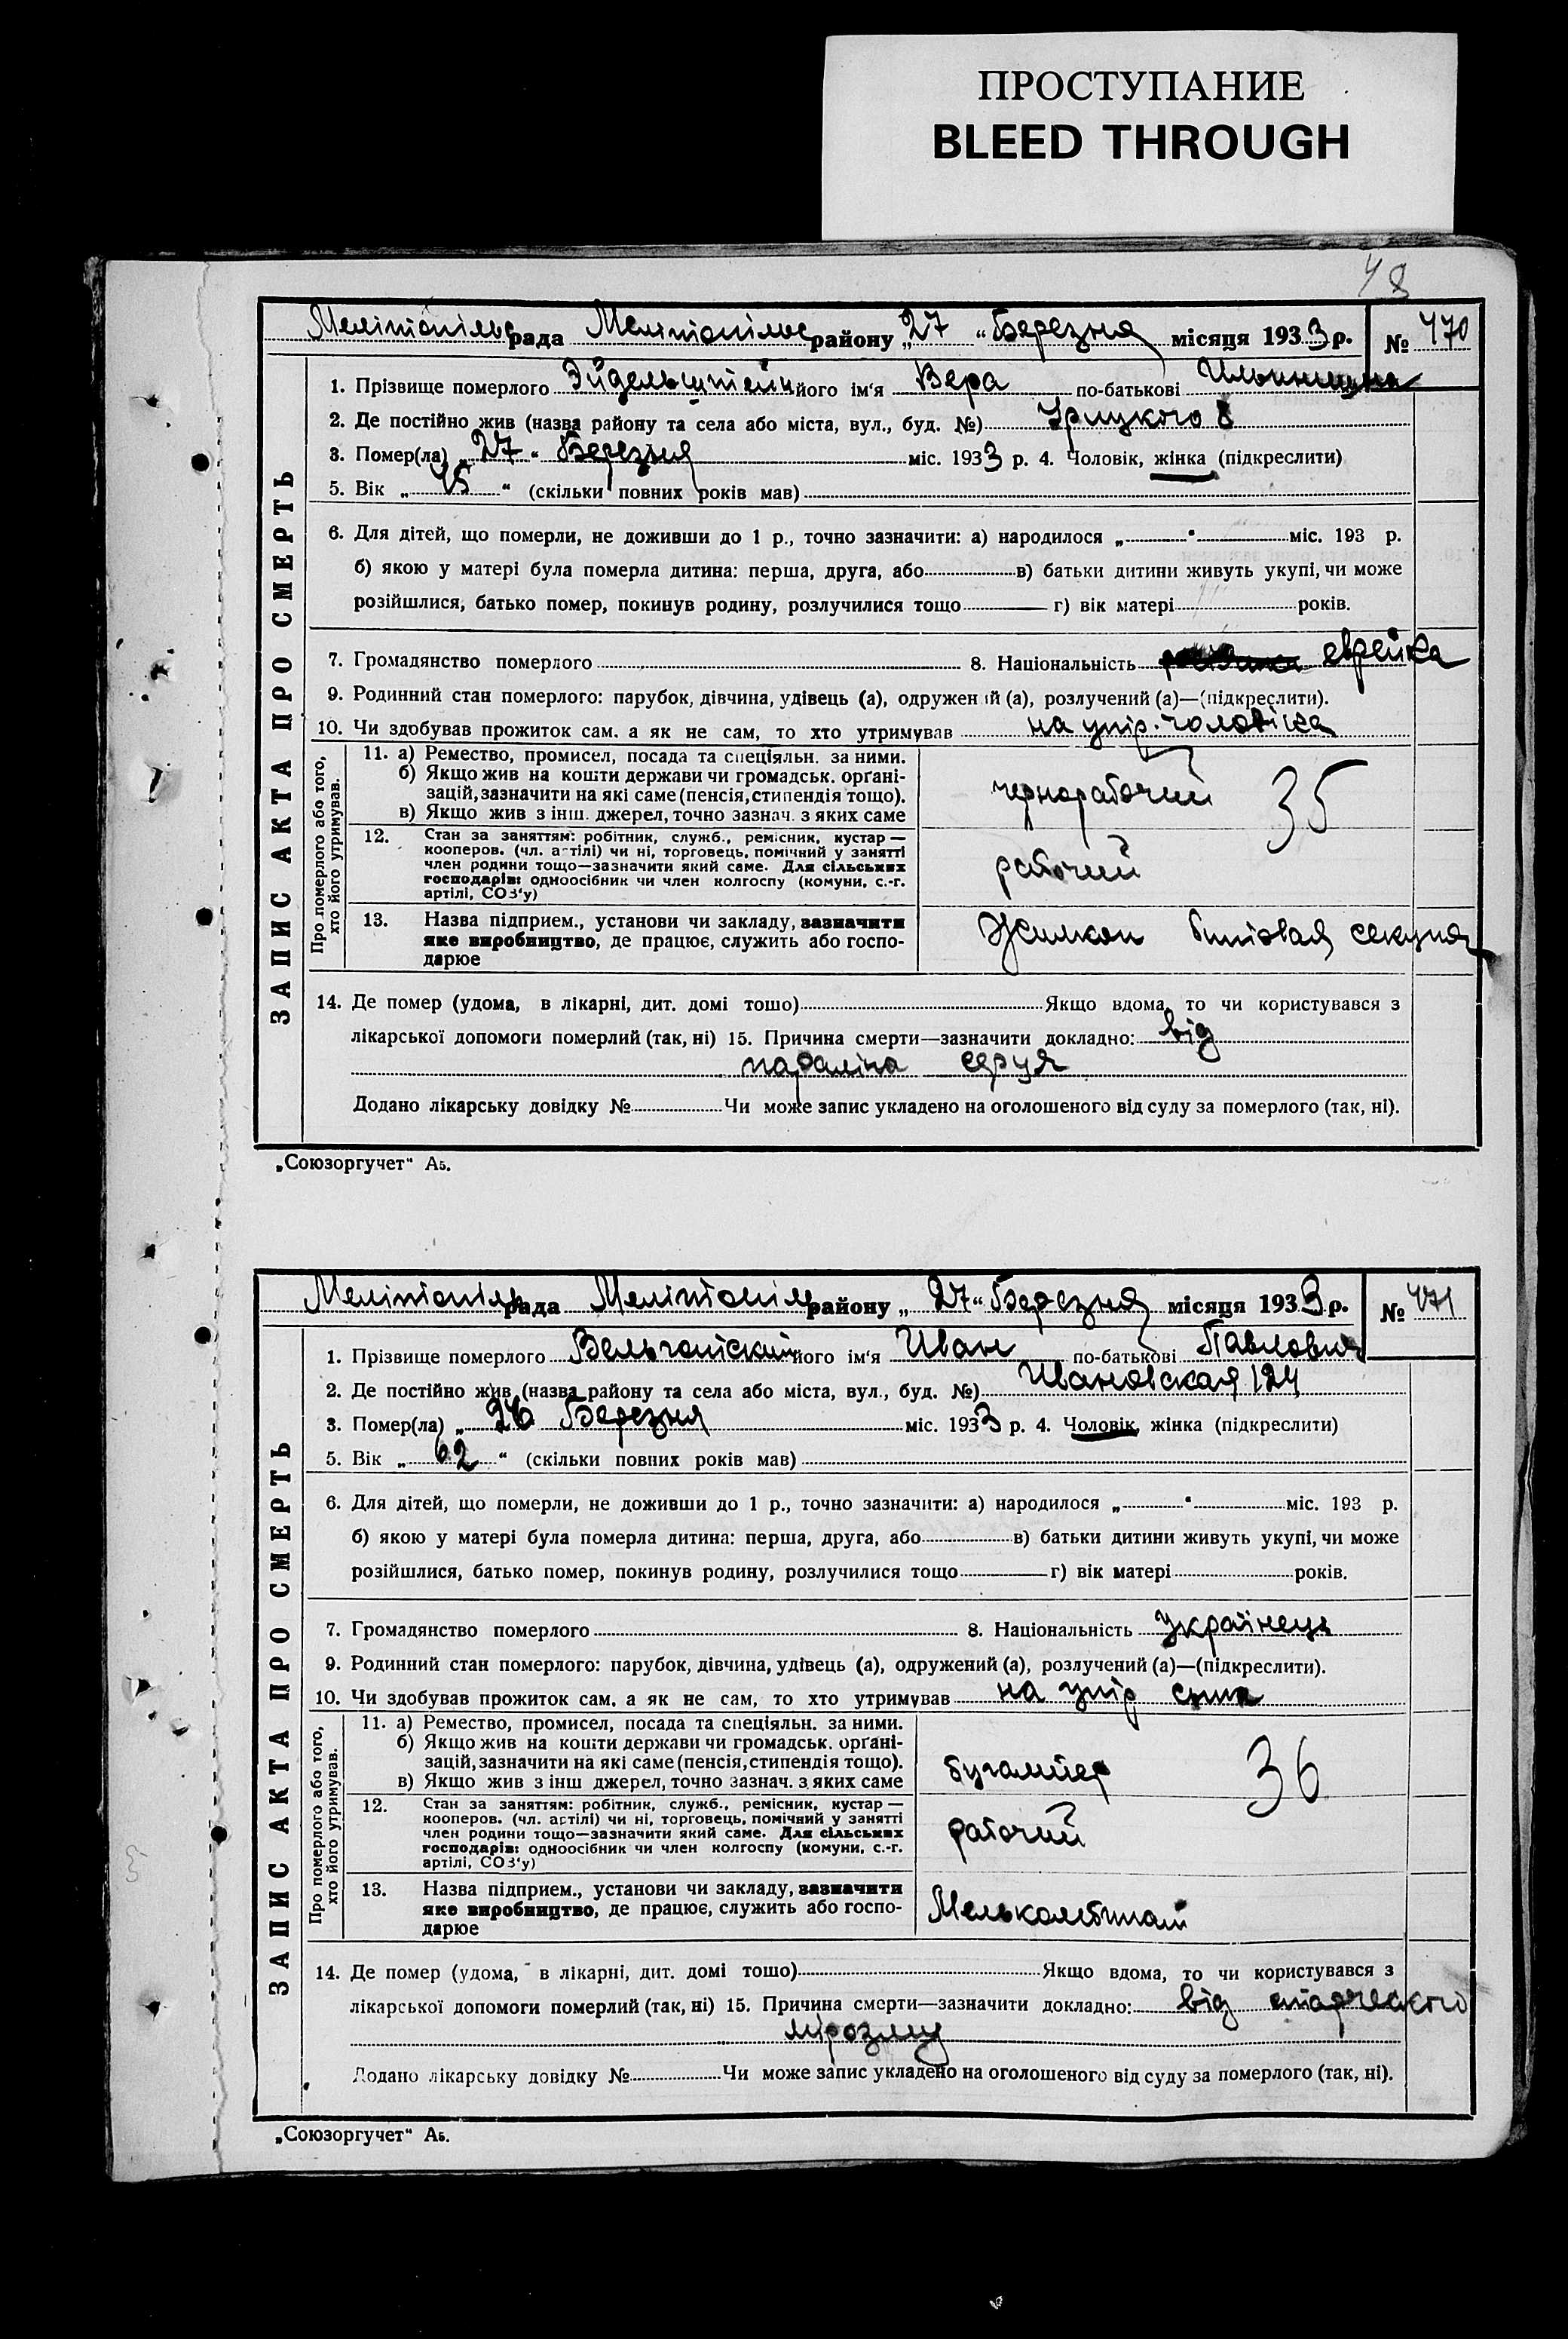 ПРОСТУПАНИЕ
BLEED THROUGH
48
ЗАПИС АКТА ПРО СМЕРТЬ
Мелітопільс рада Мелітопільс районy „27“ Березня місяця 1933 р. № 470
1. Прізвище померлого Эйдельштейн його ім'я Вера по-батькові
2. Де постійно жив (назва району та села або міста, вул., буд. №) Урицкого 8
3. Помер(ла) „27“ Березня міс. 1933 р. 4. Чоловік, жінка (підкреслити)
5. Вік „45“ (скільки повних років мав)
6. Для дітей, що померли, не доживши до 1 р., точно зазначити: а) народилося „ “ міс. 193 р.
б) якою у матері була померла дитина: перша, друга, або в) батьки дитини живуть укупі, чи може
розійшлися, батько помер, покинув родину, розлучилися тощо г) вік матері років.
7. Громадянство померлого 8. Національність еврейка
9. Родинний стан померлого: парубок, дівчина, удівець (а), одружений (а), розлучений (а)—(підкреслити).
10. Чи здобував прожиток сам, а як не сам, то хто утримував на утр. чоловіка
Про померлого або того, хто його утримував.
11. а) Ремество, промисел, посада та спеціяльн. за ними.
б) Якщо жив на кошти держави чи громадськ. орґані-
зацій, зазначити на які саме (пенсія, стипендія тощо).
в) Якщо жив з інш. джерел, точно зазнач. з яких саме
чернорабочий 35
12. Стан за заняттям: робітник, служб., ремісник, кустар —
кооперов. (чл. артілі) чи ні, торговець, помічний у занятті
член родини тощо—зазначити який саме. Для сільських
господарів: одноосібник чи член колгоспу (комуни, с.-г.
артілі, СОЗ'у)
рабочий
13. Назва підприєм., установи чи закладу, зазначити
яке виробництво, де працює, служить або госпо-
дарює
секция
14. Де помер (удома, в лікарні, дит. домі тошо) Якщо вдома, то чи користувався з
лікарської допомоги померлий (так, ні) 15. Причина смерти—зазначити докладно: від
параліча серця
Додано лікарську довідку № Чи може запис укладено на оголошеного від суду за померлого (так, ні).
„Союзоргучет“ А5.
ЗАПИС АКТА ПРО СМЕРТЬ
Мелітопіль рада Мелітопіль району „27“ Березня місяця 1933 р. № 471
1. Прізвище померлого його ім'я Иван по-батькові Павлович
2. Де постійно жив (назва району та села або міста, вул., буд. №) Ивановская 124
3. Помер(ла) „26 Березня міс. 1933 р. 4. Чоловік, жінка (підкреслити)
5. Вік „62“ (скільки повних років мав)
6. Для дітей, що померли, не доживши до 1 р., точно зазначити: а) народилося „ “ міс. 193 р.
б) якою у матері була померла дитина: перша, друга, або в) батьки дитини живуть укупі, чи може
розійшлися, батько помер, покинув родину, розлучилися тощо г) вік матері років.
7. Громадянство померлого 8. Національність Українець
9. Родинний стан померлого: парубок, дівчина, удівець (а), одружений (а), розлучений (а)—(підкреслити).
10. Чи здобував прожиток сам, а як не сам, то хто утримував на утр сина
Про померлого або того, хто його утримував.
11. а) Ремество, промисел, посада та спеціяльн. за ними.
б) Якщо жив на кошти держави чи громадськ. орґані-
зацій, зазначити на які саме (пенсія, стипендія тощо).
в) Якщо жив з інш джерел, точно зазнач. з яких саме
бугалтер 36
12. Стан за заняттям: робітник, служб., ремісник, кустар —
кооперов. (чл. артілі) чи ні, торговець, помічний у занятті
член родини тощо—зазначити який саме. Для сільських
господарів: одноосібник чи член колгоспу (комуни, с.-г.
артілі, СОЗ'у)
рабочий
13. Назва підприєм., установи чи закладу, зазначити
яке виробництво, де працює, служить або госпо-
дарює
Мелькомбинат
14. Де помер (удома, в лікарні, дит. домі тошо) Якщо вдома, то чи користувався з
лікарської допомоги померлий (так, ні) 15. Причина смерти—зазначити докладно: від старческого
Додано лікарську довідку № Чи може запис укладено на оголошеного від суду за померлого (так, ні).
„Союзоргучет“ А5.